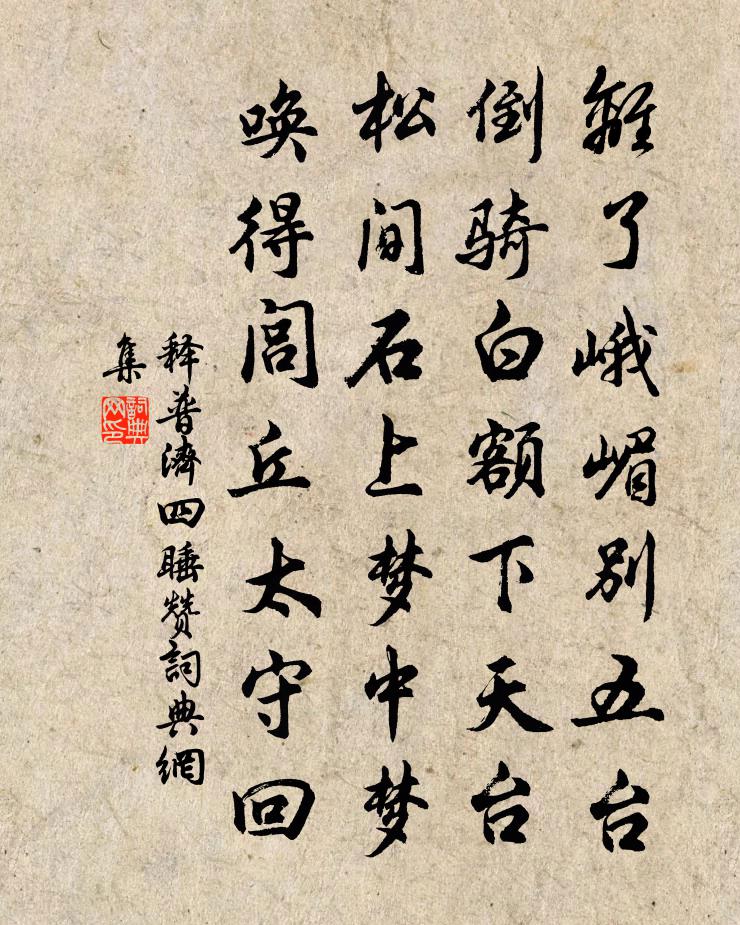 離了峨嵋别五台
倒骑白額下天台
松间石上梦中梦
唤得闾丘太守回
释普濟四睡赞詞典網
集
詞典
网印